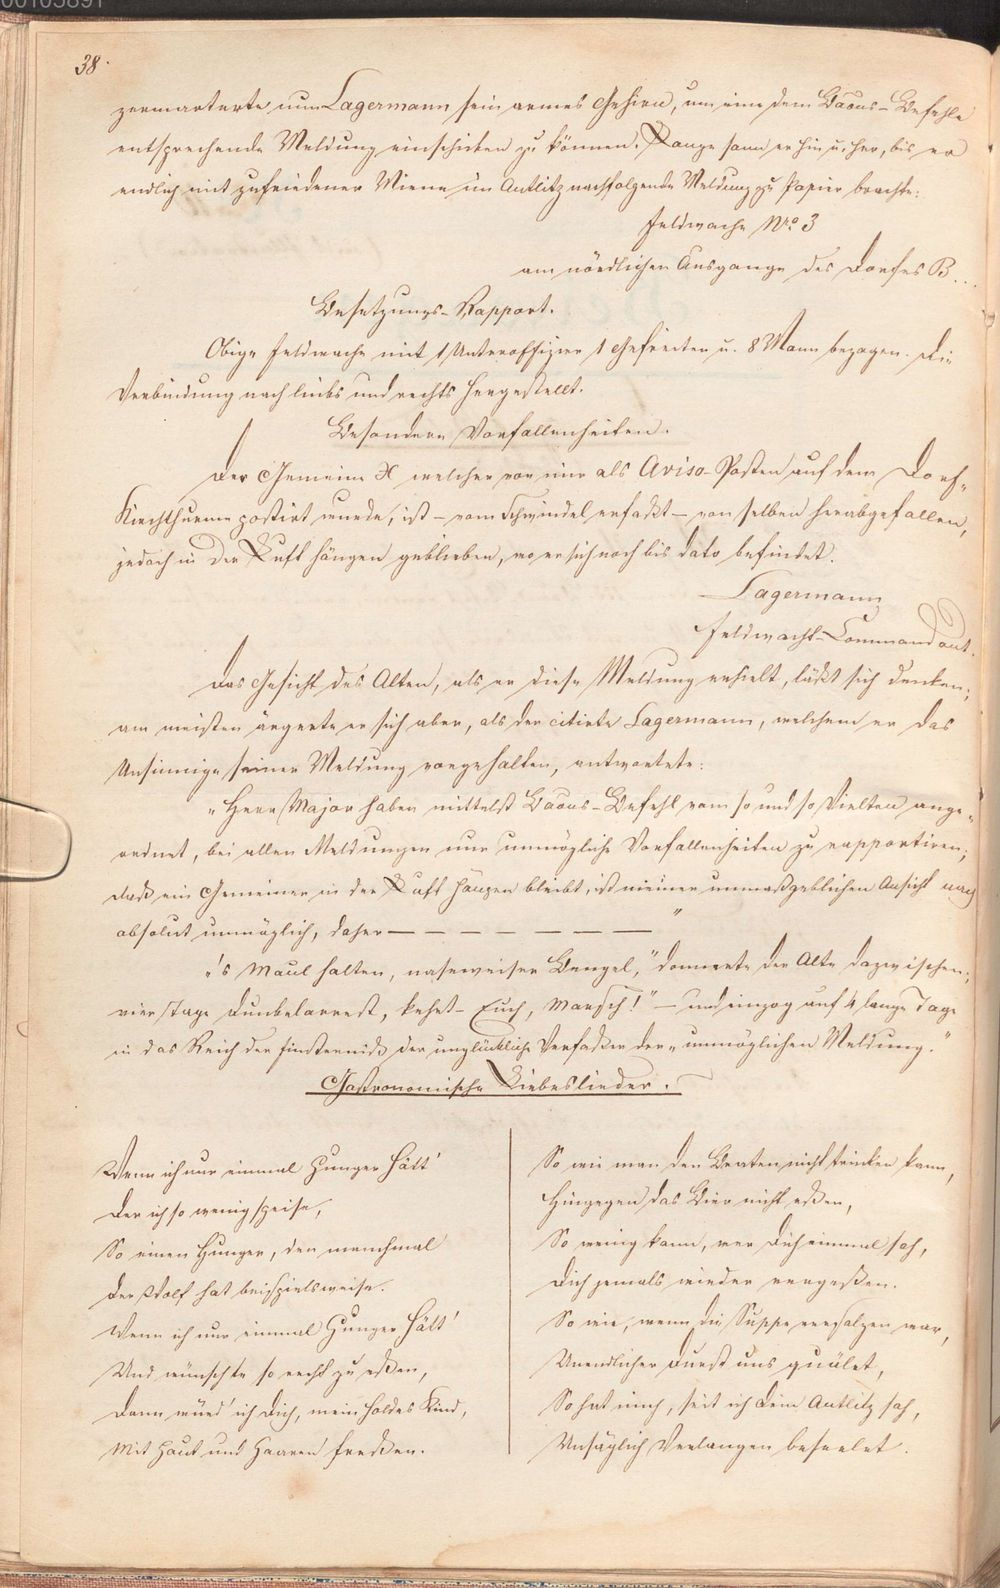 00105891
38.
zermarterte nun Lagermann sein armes Gehirn, um eine dem Baons-Befehle
entsprechende Meldung einschicken zu können. Lange sann er hin u. her, bis er
endlich mit zufriedener Miene im Antlitz nachfolgende Meldung zu Papier brachte:
Feldwache Nro 3
am nördlichen Ausgange des Dorfes B...
Besetzungs-Rapport.
Obige Feldwache mit 1 Unteroffizier 1 Gefreiter u. 8 Mann bezogen. Die
Verbindung nach links und rechts hergestellt.
Besondere Vorfallenheiten.
Der Gemeine X welcher von mir als Aviso-Posten auf dem Dorf-
Kirchthurme postirt wurde, ist – vom Schwindel erfaßt – von selben herabgefallen,
jedoch in der Luft hängen geblieben, wo er sich noch bis dato befindet.
Lagermann
Feldwach-Commandant.
Das Gesicht des Alten, als er diese Meldung erhielt, läßt sich denken;
am meisten ärgerte er sich aber, als der citirte Lagermann, welchem er das
Unsinnige seiner Meldung vorgehalten, antwortete:
"Herr Major haben mittelst Baons-Befehl vom so und so vielten ange-
ordnet, bei allen Meldungen nur unmögliche Vorfallenheiten zu rapportiren;
daß ein Gemeiner in der Luft hängen bleibt, ist meiner unmaßgeblichen Ansicht nach
absolut unmöglich, daher — — — — — — — "
"'s Maul halten, naseweiser Bengel," donnerte der Alte dazwischen;
vier Tage Dunkelarrest, kehrt-Euch, Marsch!" – und einzog auf 4 lange Tage
in das Reich der Finsterniß der unglückliche Verfaßer der "unmöglichen Meldung."
Gastronomische Liebeslieder.
Wenn ich nur einmal Hunger hätt'
Der ich so wenig speise,
So einen Hunger, den manchmal
Der Wolf hat beispielsweise.
Wenn ich nur einmal Hunger hätt'
Und wünschte so recht zu eßen,
Dann würd' ich Dich, mein holdes Kind,
Mit Haut und Haaren freßen.
So wie man den Braten nicht trinken kann,
Hingegen das Bier nicht eßen,
So wenig kann, wer Dich einmal sah,
Dich jemals wieder vergeßen.
So wie, wenn die Suppe versalzen war,
Unendlicher Durst uns quälet,
So hat mich, seit ich Dein Antlitz sah,
Unsäglich Verlangen beseelet.